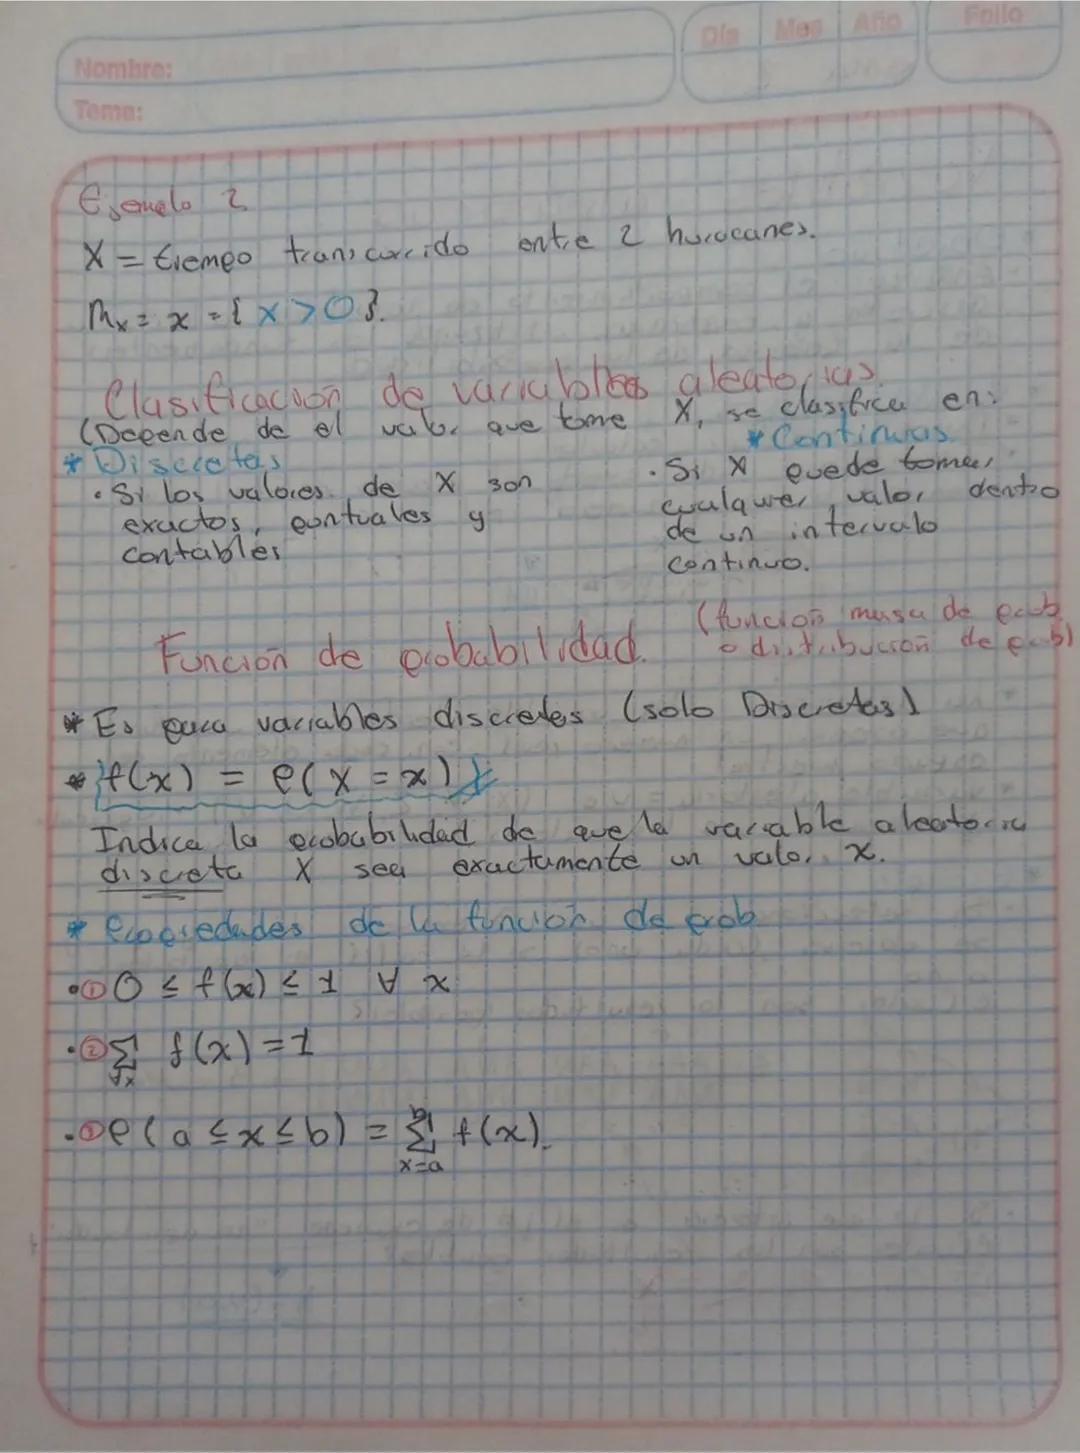 Día Mes Año Folio
Nombre:
Tema:
Ejemplo 2
X = tiempo transcurrido entre 2 huracanes.
Mx = x = { x > 0 }.
Clasificación de variables aleatorias.
(Depende de el valor que tome X, se clasifica en:
* Discretas
• Si los valores de X son
exactos, puntuales y
contables
* Continuas
• Si X puede tomar
cualquier valor dentro
de un intervalo
continuo.
Función de probabilidad. (función masa de prob
o distribución de prob)
* Es para variables discretas (solo Discretas)
* f(x) = P(X = x)
Indica la probabilidad de que la variable aleatoria
discreta X sea exactamente un valor x.
* Propiedades de la función de prob
• ① 0 ≤ f(x) ≤ 1 ∀ x
• ② ∑ f(x) = 1
∀x
• ③ P(a ≤ x ≤ b) = ∑ f(x).
x=a